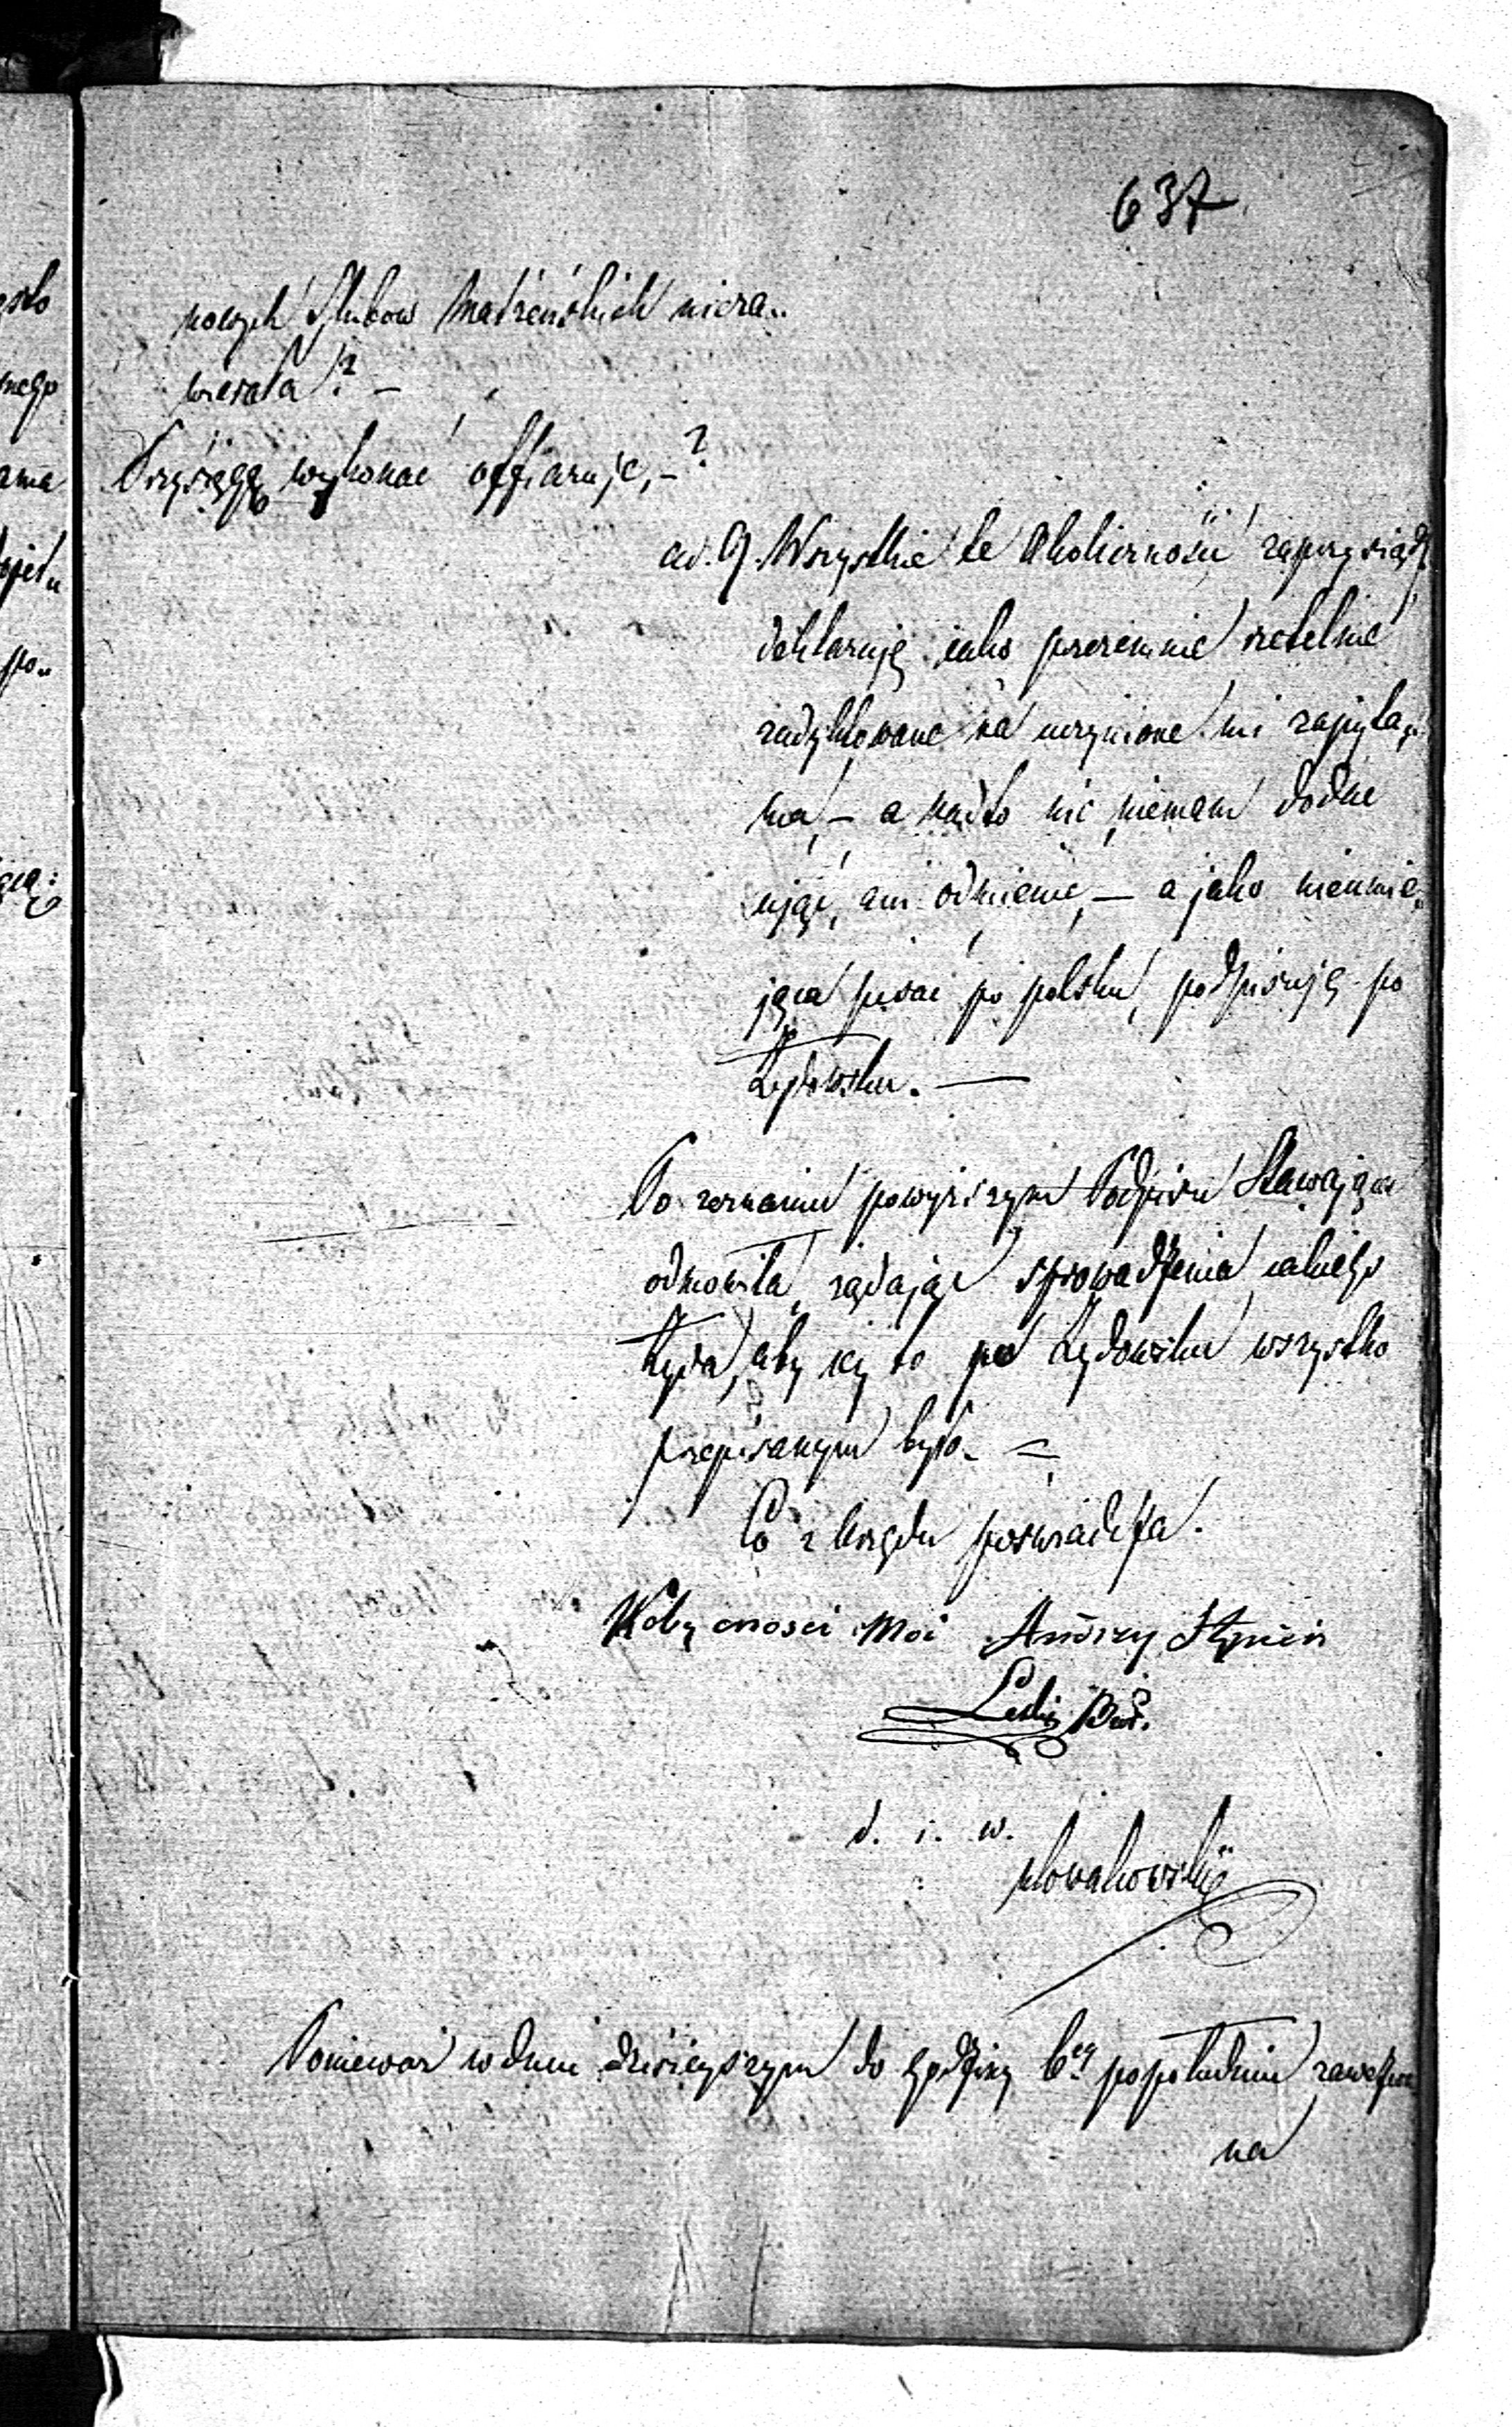 637
nowych Slubow Małzeńskich nieza„
wierała? —
Przysięgę wykonać offiaruje, —?
ad. 9. Wszystkie te Okoliczności zaprzysiądz
deklaruję jako przezemnie rzetelnie
zadyktowane na uczynione mi zapyta„
nia, — a nadto nic niemam dodać
ująć, ani odmienić, — a jako nieumie„
jąca pisać po polsku, podpisuję po
Żydowsku. —
Po zeznaniu powyższym Podpisu Stawająca
odmówiła, żądając sprowadzenia jakiego
Żyda, aby jey to po Żydowsku wszystko
przepisanym było. —
Co z Urzędu poswiadcza.
W obecnosci Moi Andrzy
d. i. w.
Nowakowski
Ponieważ w dniu dzisieyszym do godziny 6ey popołudniu
na